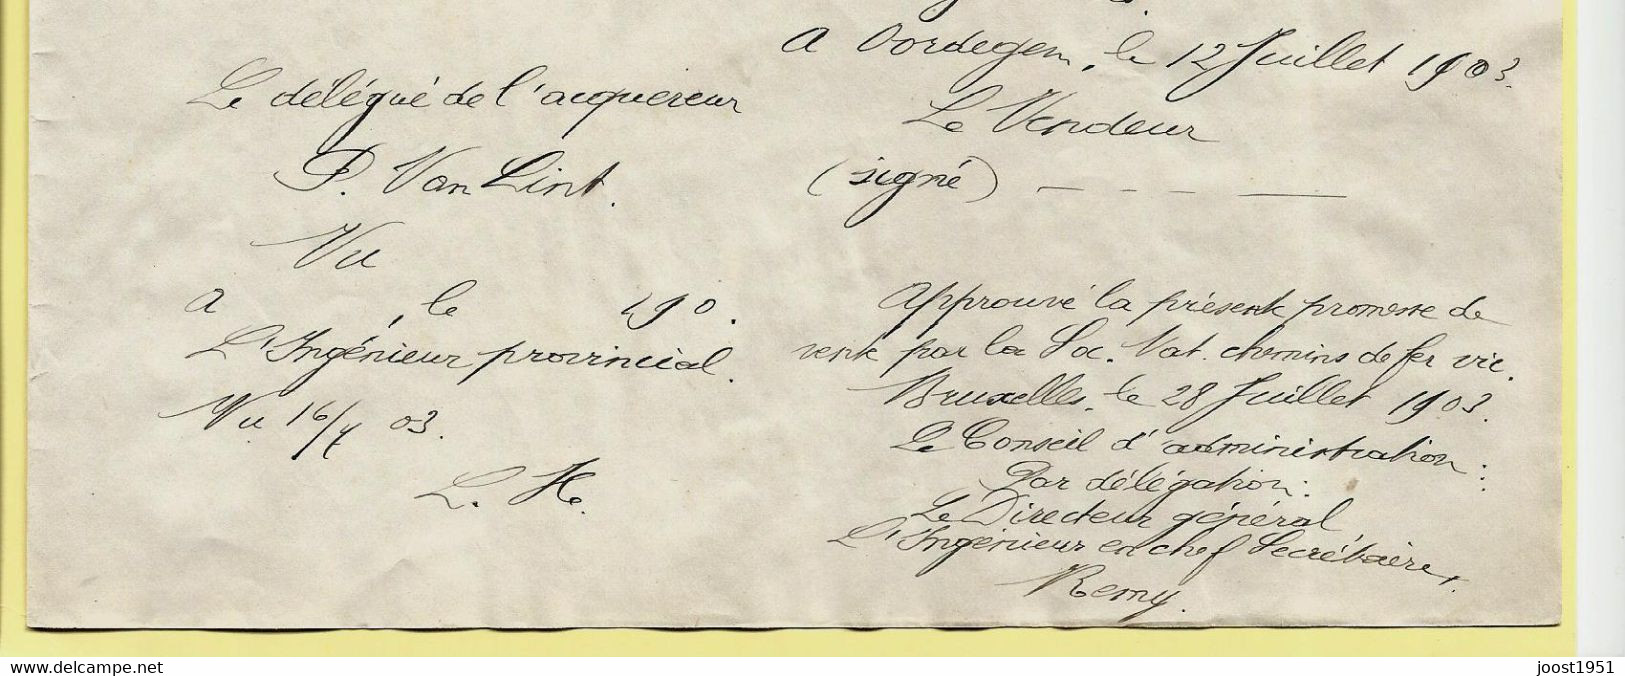 A Oordegem, le 12 Juillet 1903.
Le Vendeur
(signé) — - - —
Le délégué de l'acquereur
P. Van Lint.
Vu
A , le 190 .
L'Ingénieur provincial.
Vu 16/7 03.
L. H.
Approuvé la présente promesse de
vente par la Soc. Nat. chemins de fer vic.
Bruxelles, le 28 Juillet 1903.
Le Conseil d'administration:
Par délégation:
Le Directeur général
L'Ingénieur en chef Secrétaire,
Remy.
www.delcampe.net
joost1951